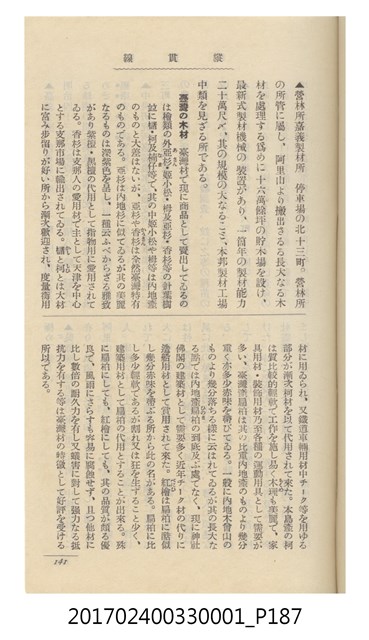 鐵貫縱
▲營林所嘉義製材所　停車場の北十三町。營林所
の所管に屬し、阿里山より搬出さるる長大なる木
材を處理する爲めに十六萬餘坪の貯木場を設け、
最新式製材機械の裝置があり、一箇年の製材能力
二十萬尺〆、其の規模の大なること、本邦製材工場
中類を見ざる所である。
臺灣の木材　臺灣材で現に商品として賣出してゐるの
は檜類の外亞杉・姫小松・栂及亞杉・香杉等の針葉樹
のものと大差はないが、亞杉や香杉は全然臺灣特有
のものである。亞杉は内地杉に似てゐるが其の美麗
なるものは深紫色を呈し、一種云ふべからざる雅致
があり紫檀・黑檀の代用として指物用に愛用されて
ゐる。香杉は支那人の愛用材で主として天津を中心
とする支那市場に輸出されてゐる。櫧と柯とは大材
に富み步留りが好い所から漸次歡迎され、度量衡用
材に用ゐられ、又鐵道車輛用材中チーク等を用ゆる
部分が漸次柯材を以て代用されて來た。本島産の柯
は質比較的輕軟で工作を施し易く木理も美麗で、家
具用材・裝飾用材乃至各種の運動用具として需要が
多い。臺灣産扁柏は其の比重内地産のものより幾分
重く赤多少赤味を帶びてゐる。一般に内地木曾山の
ものより幾分落ちる樣に云はれてゐるが其の長大な
る點では内地産扁柏の到底及ぶ處でなく、現に神社
佛閣の建築材として需要多く近年チーク材の代りに
造船用材として賞用されて來た。紅檜は扁柏に酷似
し幾分赤味を帶ふる所から此の名がある。扁柏に比
し多少輕軟であるが割れ又は狂を生ずること少く、
建築用材として扁柏の代用とすることが出來る。殊
に扁柏にしても、紅檜にしても、其の品質が頗る優
良で、風雨にさらすも容易に腐蝕せず、且つ他材に
比し數倍の耐久力を有し又蟻害に對して强力なる抵
抗力を有する等は臺灣材の特徴として好評を受ける
所以である。
141
201702400330001_P187